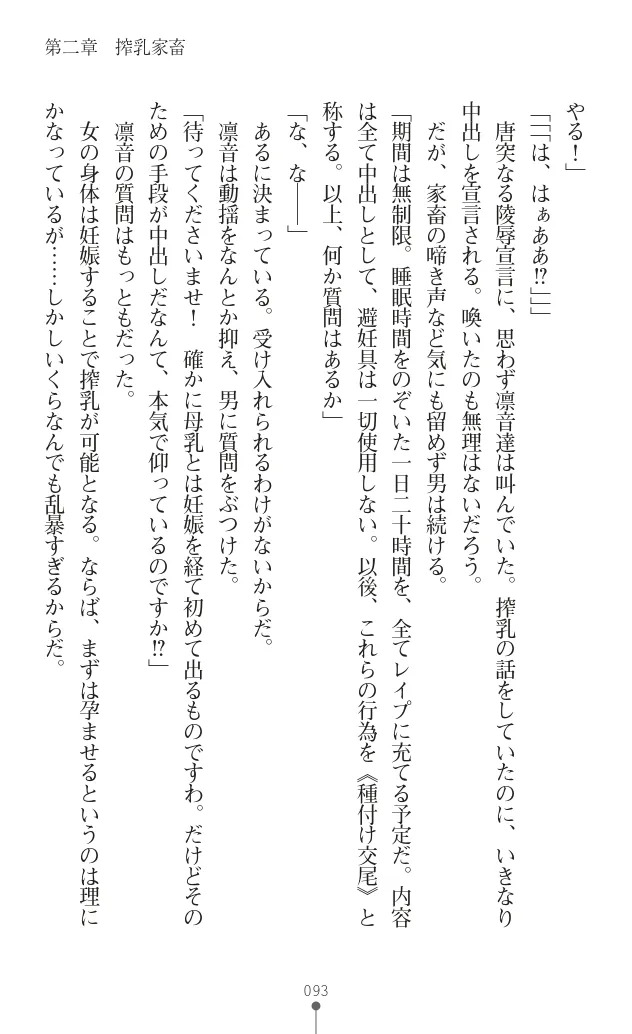 第二章　搾乳家畜
やる！」
「「「は、はぁああ!?」」」
　唐突なる陵辱宣言に、思わず凛音達は叫んでいた。搾乳の話をしていたのに、いきなり
中出しを宣言される。喚いたのも無理はないだろう。
　だが、家畜の啼き声など気にも留めず男は続ける。
「期間は無制限。睡眠時間をのぞいた一日二十時間を、全てレイプに充てる予定だ。内容
は全て中出しとして、避妊具は一切使用しない。以後、これらの行為を《種付け交尾》と
称する。以上、何か質問はあるか」
「な、な――」
　あるに決まっている。受け入れられるわけがないからだ。
　凛音は動揺をなんとか抑え、男に質問をぶつけた。
「待ってくださいませ！　確かに母乳とは妊娠を経て初めて出るものですわ。だけどその
ための手段が中出しだなんて、本気で仰っているのですか!?」
　凛音の質問はもっともだった。
　女の身体は妊娠することで搾乳が可能となる。ならば、まずは孕ませるというのは理に
かなっているが……しかしいくらなんでも乱暴すぎるからだ。
093